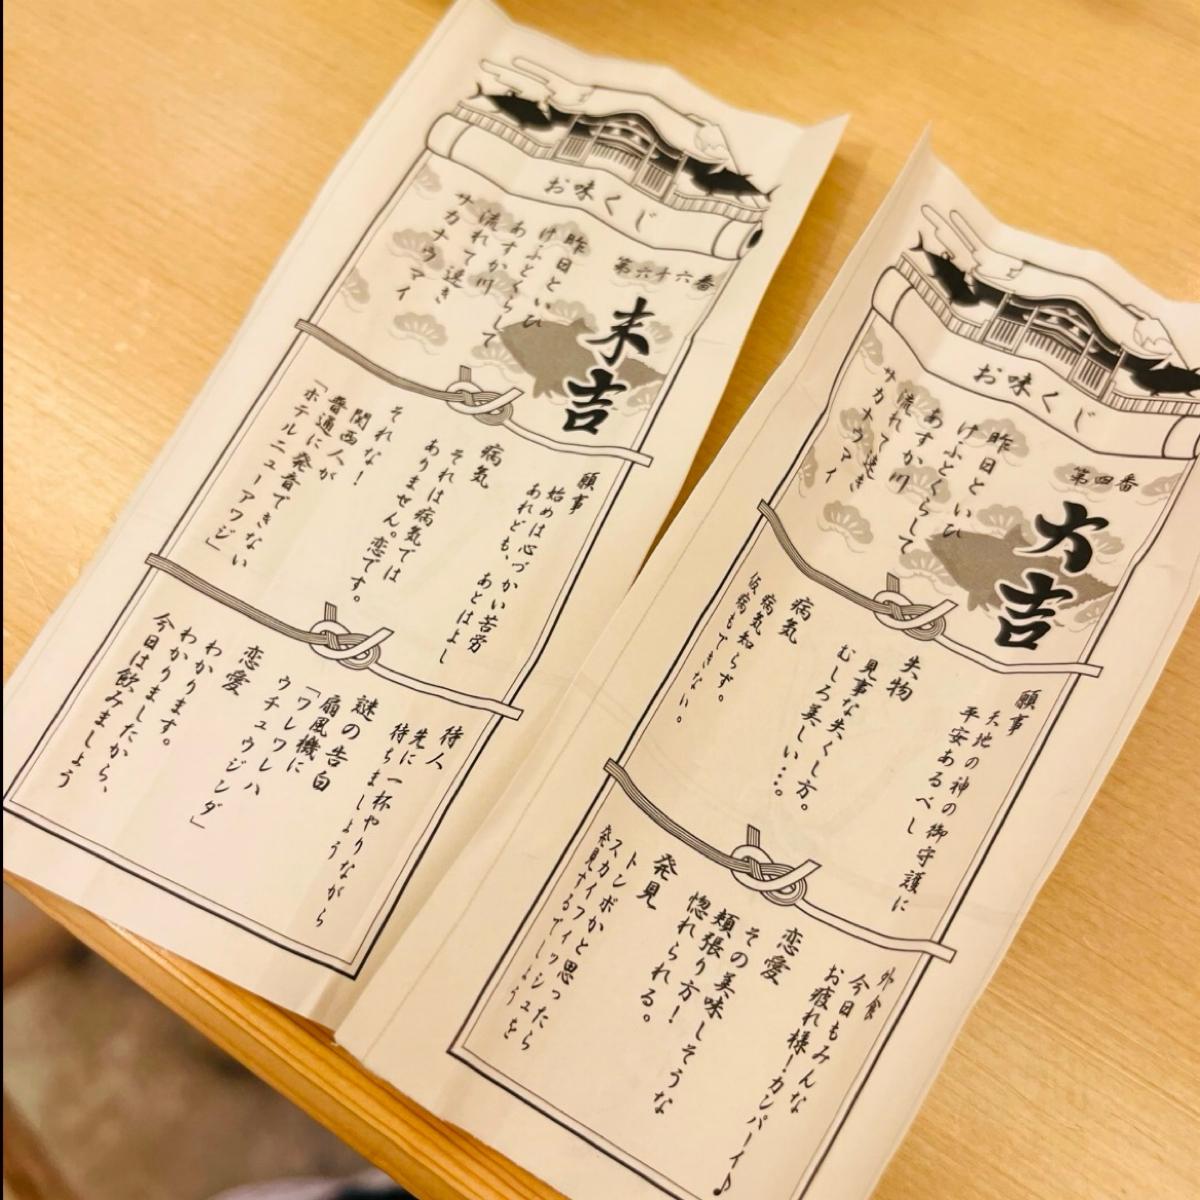 お味くじ
第六十六番
末吉
昨日といひ
けふとくらして
あすか川
流れて速き
サカナウマイ
願事
始めは心づかい苦労
あれども、あとはよし
病気
それは病気では
ありません。恋です。
それな!
関西人が
普通に発音できない
「ホテルニューアワジ」
待人
先に一杯やりながら
待ちましょう
謎の告白
扇風機に
「ワレワレハ
ウチュウジンダ」
恋愛
わかります。
わかりましたから、
今日は飲みましょう
お味くじ
第四番
大吉
昨日といひ
けふとくらして
あすか川
流れて速き
サカナウマイ
願事
天地の神の御守護に
平安あるべし
失物
見事な失くし方。
むしろ美しい…。
病気
病気知らず。
仮病もできない。
外食
今日もみんな
お疲れ様!カンパーイ♪
恋愛
その美味しそうな
頬張り方!
惚れられる。
発見
トンボかと思ったら
スカイフィッシュを
発見するでしょう